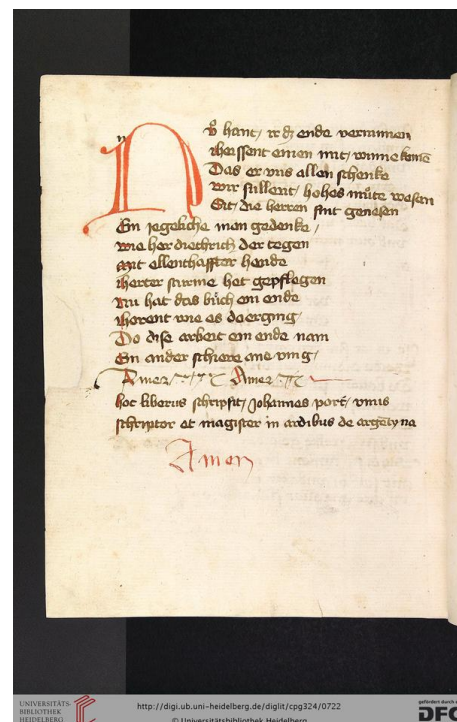 N v̊ hant ir dz ende vernumen
Heissent einen mit winne komē
Das er vns allen schenke
wir süllent hohes můte wesen
Sit die herren sint genesen
Ein iegeliche men gedenke
wie her diethrich der tegen
mit ellenthaffter hende
herter sturme het gepflegen
Nu hat das bůch ein ende
Horent wie es do erging
Do dise arbeit ein ende nam
Ein ander schiere ane ving
Amen Amen
hoc liberus schripsit Johannes port vnus
schriptor et magister in ardibus de argētyna
Amen
UNIVERSITÄTS-
BIBLIOTHEK
HEIDELBERG
http://digi.ub.uni-heidelberg.de/diglit/cpg324/0722
© Universitätsbibliothek Heidelberg
gefördert durch
DFG